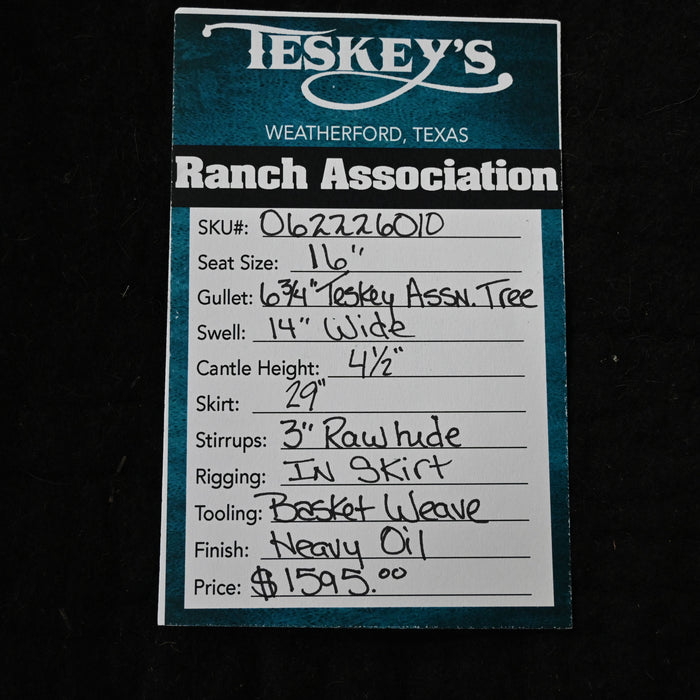 TESKEY'S
WEATHERFORD, TEXAS
Ranch Association
SKU#: 062226010
Seat Size: 16"
Gullet: 6¾" Teskey Assn. Tree
Swell: 14" Wide
Cantle Height: 4½"
Skirt: 29"
Stirrups: 3" Rawhide
Rigging: In Skirt
Tooling: Basket Weave
Finish: Heavy Oil
Price: $1595.00